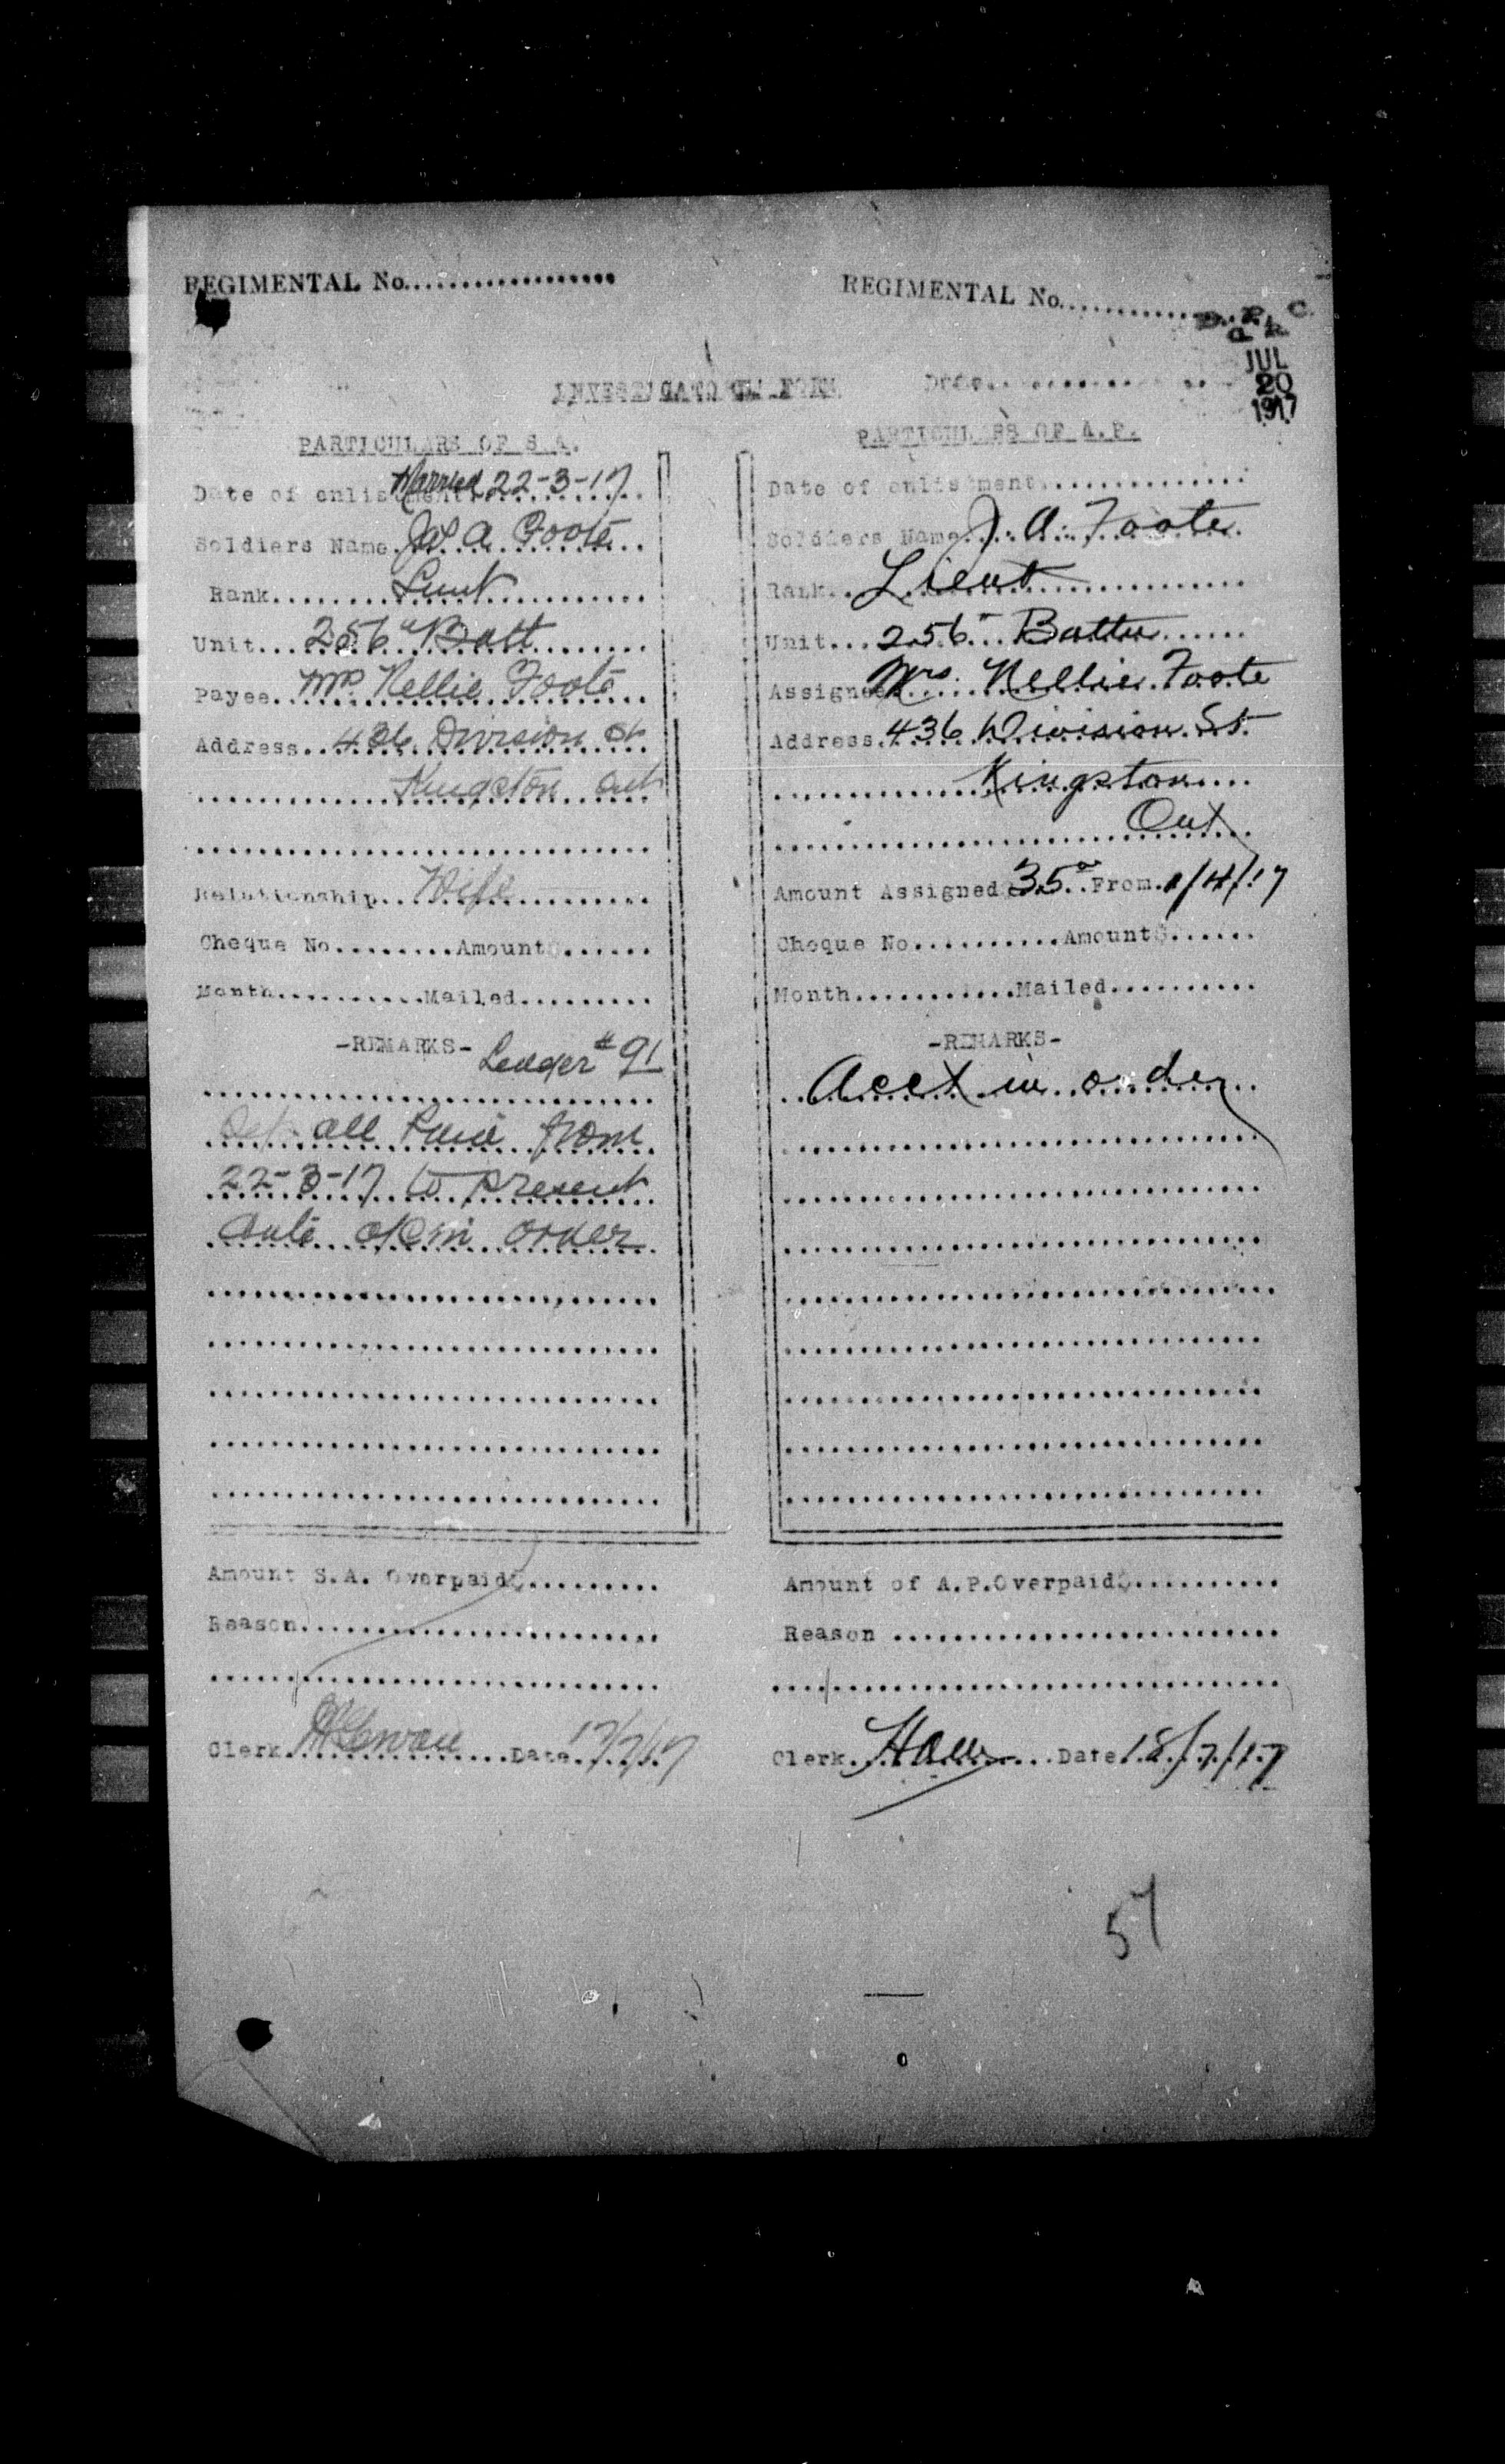 REGIMENTAL No..................
REGIMENTAL No..............
JUL
20
1917
INVESTIGATION FORM
Date..............
PARTICULARS OF S.A.
Date of enlistment Married 22-3-17
Soldiers Name. Jas A Foote
Rank. Lieut
Unit... 256th Batt
Payee. Mrs Nellie Foote
Address. 436 Division St
Kingston Ont
Relationship. Wife
Cheque No.........Amount$......
Month..........Mailed.........
-REMARKS-
Ledger #91
all Paid from
22-3-17 to present
date in order
Amount S.A. Overpaid$.........
Reason........................
Clerk. Date. 17/7/17
PARTICULARS OF A.P.
Date of enlistment..............
Soldiers Name. J. A. Foote
Rank. Lieut
Unit... 256th Battn
Assignee Mrs. Nellie Foote
Address. 436 Division St
Kingston
Ont
Amount Assigned $35.00 From. 1/4/17
Cheque No...........Amount$......
Month............Mailed..........
-REMARKS-
Acct in order
Amount of A.P.Overpaid$..........
Reason ..........................
Clerk. Date 18/7/17
57